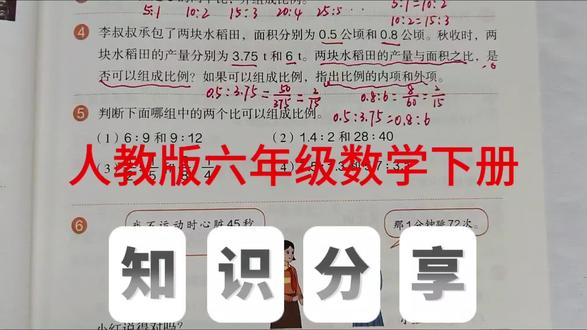 5:1 10:2 15:3 20:4 25:5
5:1=10:2
10:2=15:3
④ 李叔叔承包了两块水稻田，面积分别为0.5公顷和0.8公顷。秋收时，两
块水稻田的产量分别为3.75 t和6 t。两块水稻田的产量与面积之比，是
否可以组成比例？如果可以组成比例，指出比例的内项和外项。
0.5:3.75=50/375=2/15 0.8:6=8/60=2/15
0.5:3.75=0.8:6
⑤ 判断下面哪组中的两个比可以组成比例。
(1) 6:9和9:12 (2) 1.4:2和28:40
人教版六年级数学下册
⑥
我不运动时心脏45秒
那1分钟跳72次。
知识分享
小红说得对吗？